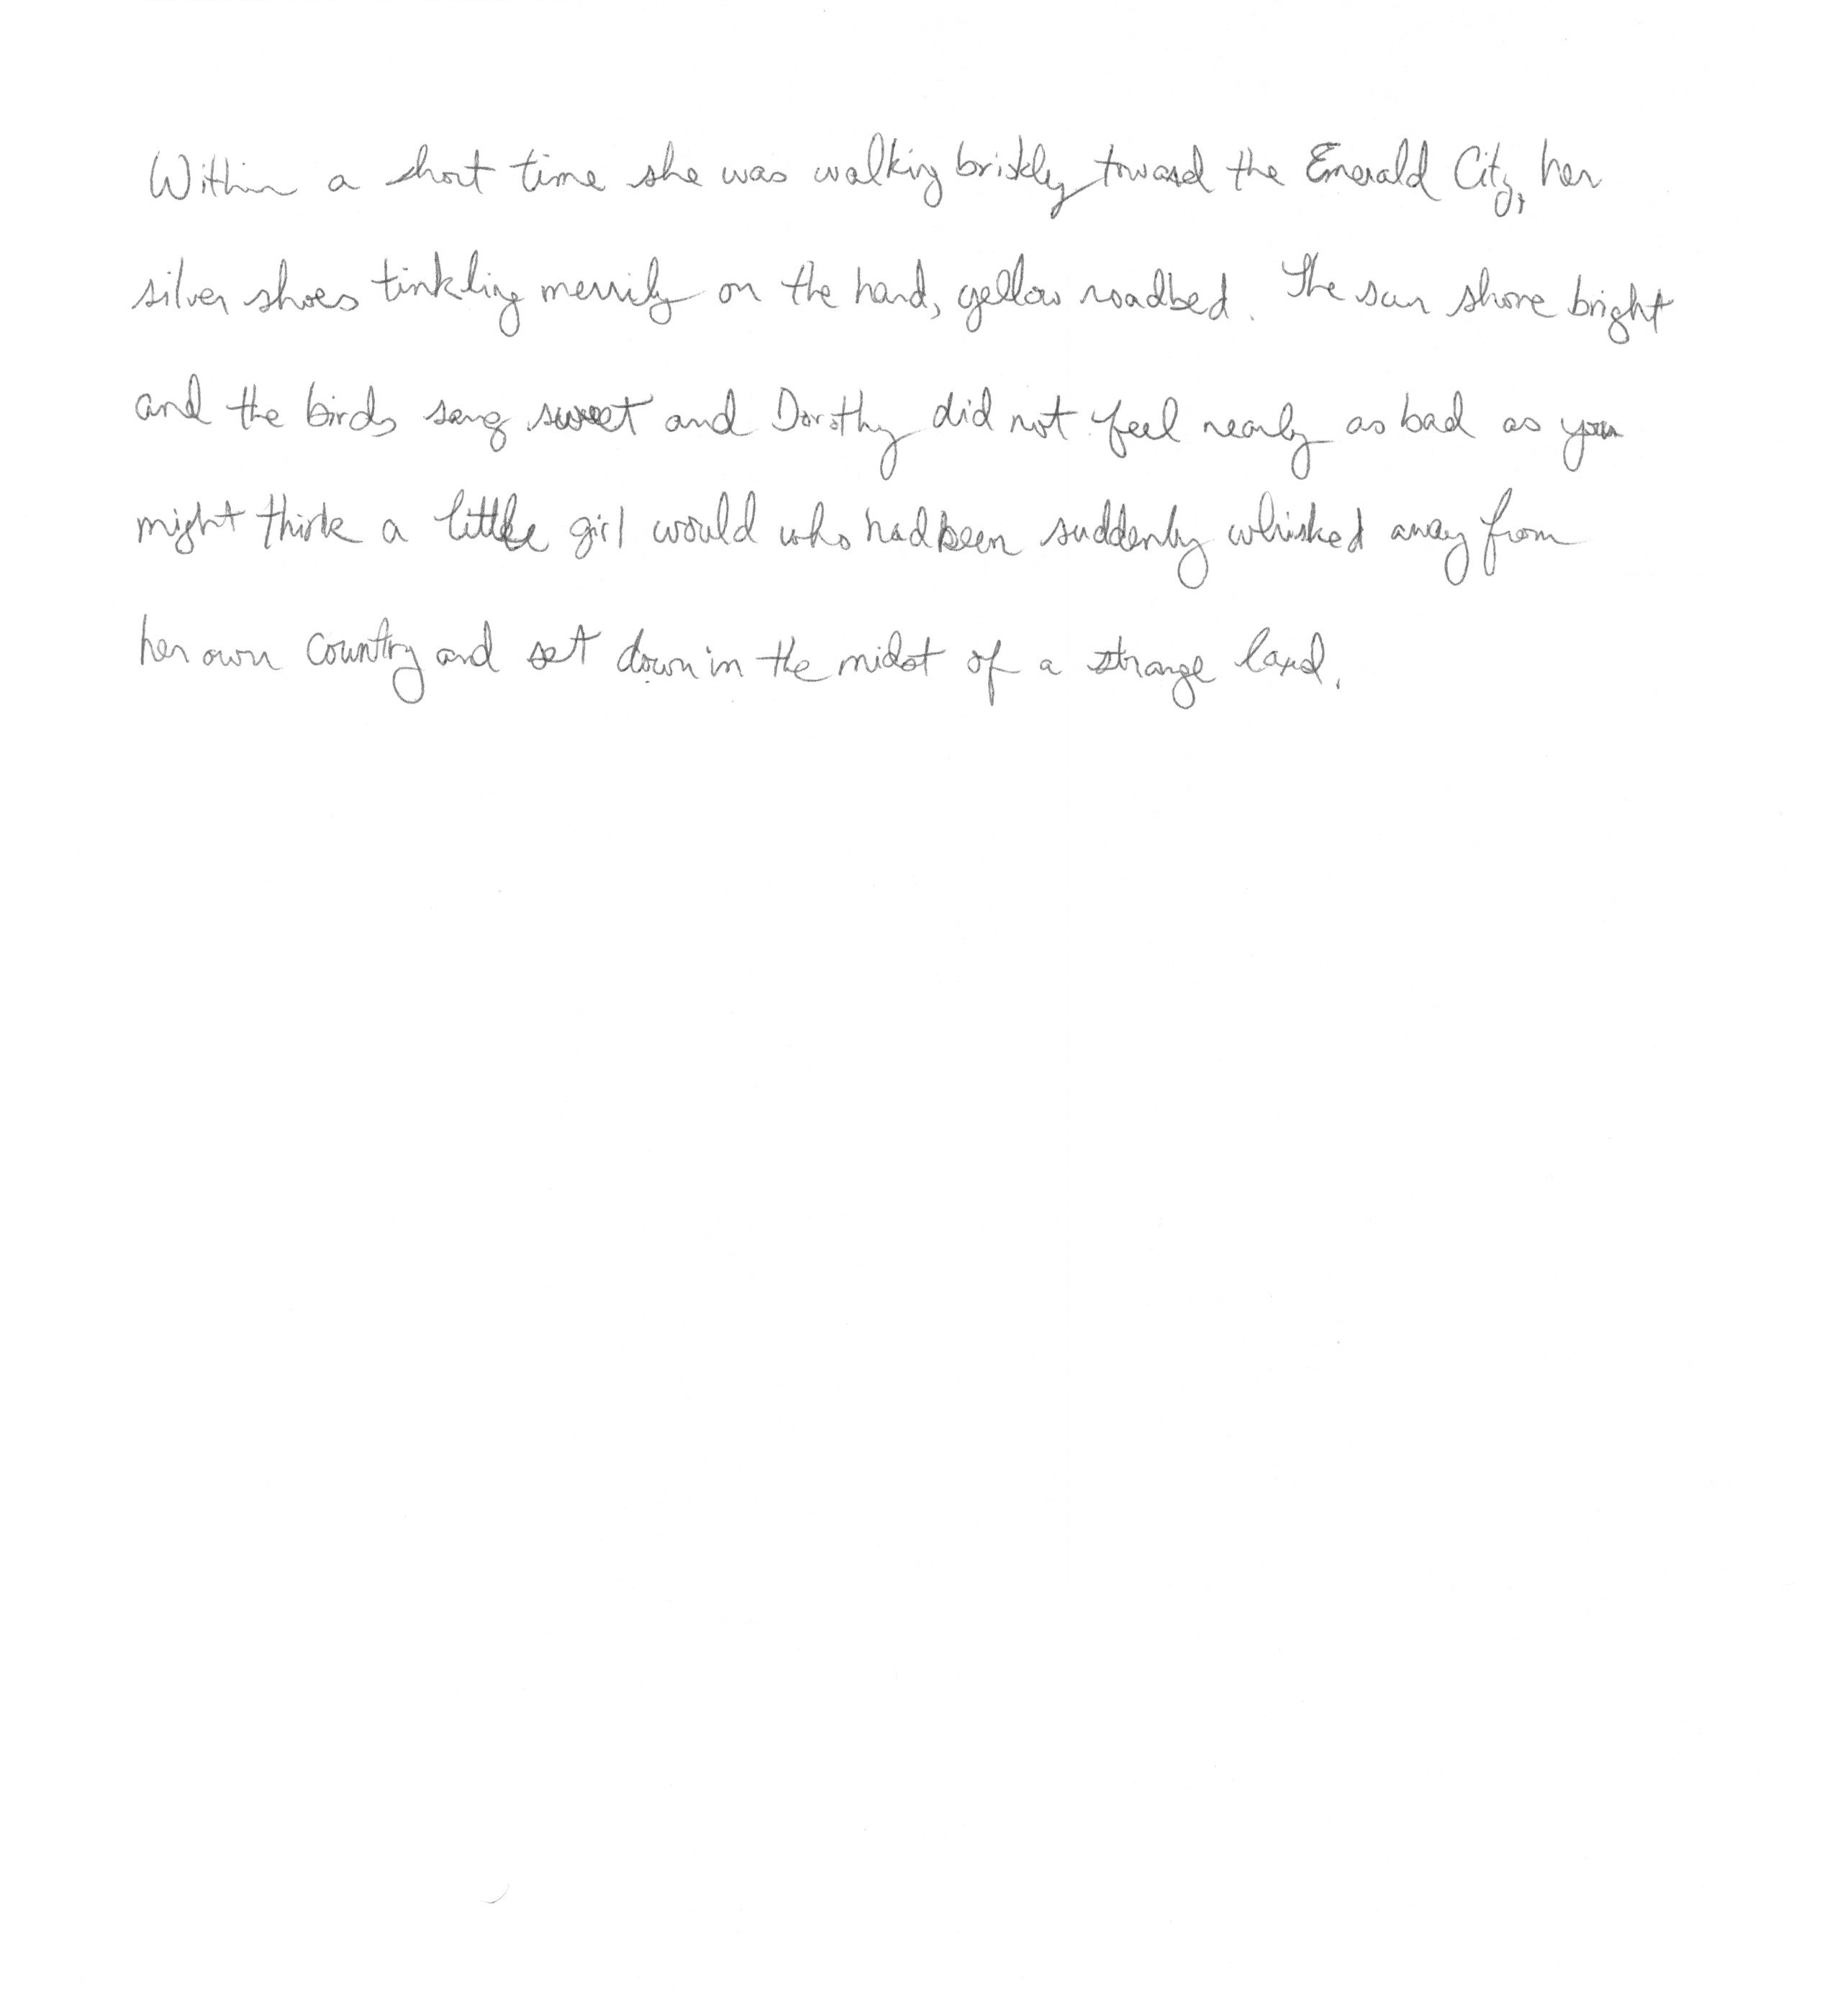 Within a short time she was walking briskly toward the Emerald City, her
silver shoes tinkling merrily on the hard, yellow roadbed. The sun shone bright
and the birds sang sweet and Dorothy did not feel nearly as bad as you
might think a little girl would who had been suddenly whisked away from
her own country and set down in the midst of a strange land.